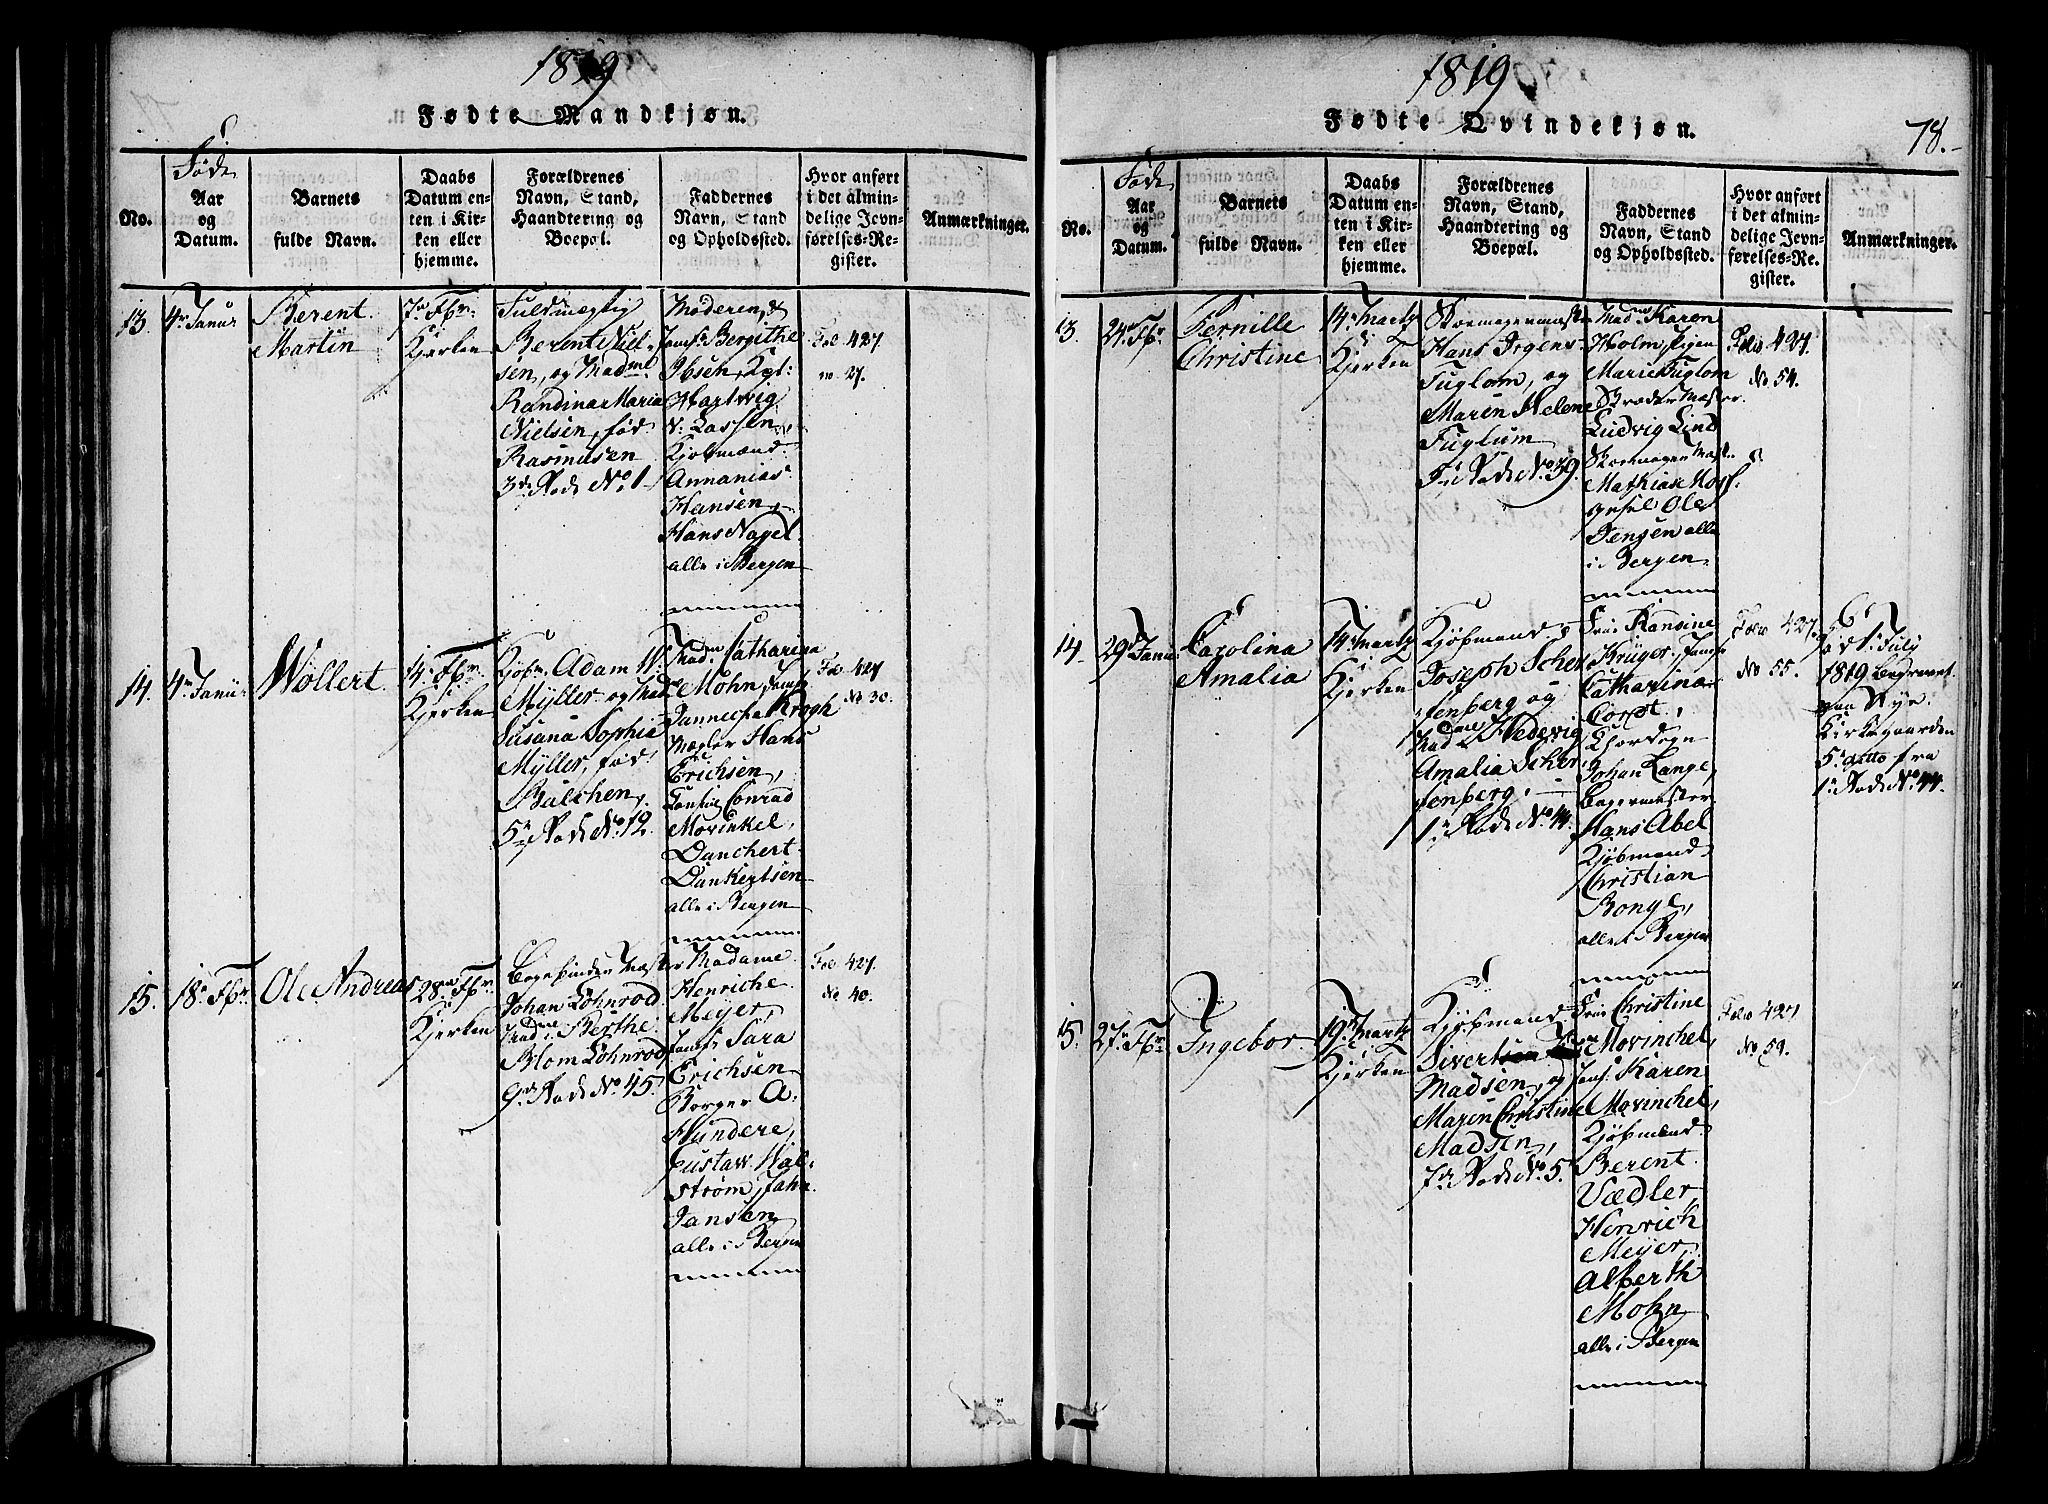 1819
Fødte Mandkjøn.
No.
Føde
Aar
og
Datum.
Barnets
fulde Navn.
Daabs
Datum en-
ten i Kir-
ken eller
hjemme.
Forældrenes
Navn, Stand,
Haandtering og
Boepæl.
Faddernes
Navn, Stand
og Opholdssted.
Hvor anført
i det almin-
delige Jevn-
førelses-Re-
gister.
Anmærkninger.
13.
4de Janur
Berent
Martin
7de Fbr.
Kjerken
Fuldmægtig
Berent Niel-
sen, og Madme
Randina Maria
Nielsen, fød
Rasmusen
3de Rode No. 1
Moderen, &
Jomf: Bergithe
Ibsen, Kgl:
Hartvig
v: Lassen,
Kjøbmænd
Annanias
Hansen,
Hans Nagel
alle i Bergen
Fol 427.
no 27.
14.
4de Janur
Wollert.
14de Fbr.
Kjerken
Kjøbm. Adam W.
Mÿller og Mad
Susana Sophia
Mÿller, fød
Balchen,
5te Rode No. 12.
Madm Catharina
Mohn, Jomf
Dannecha Krogh
Mægler Hans
Erichsen,
Conrad
Movinkel,
Danchert
Dankertsen
alle i Bergen
Fol 427
No 30.
15.
18de Fbr.
Ole Andreas
28de Fbr.
Kjerken
Bogebinder Mæster
Johan Lohnrod
Madme Berthe
Blom Lohnrod
9de Rode No. 45.
Madame
Henriche
Meyer,
Jomf: Sara
Erichsen
Borger A.
Hundere,
Gustaw Hal-
strøm, Jahn
Jansen
alle i Bergen
Fol 427.
No 40.
1819
Fødte Qvindekjøn.
78.
No.
Føde
Aar
og
Datum.
Barnets
fulde Navn.
Daabs
Datum en-
ten i Kir-
ken eller
hjemme.
Forældrenes
Navn, Stand,
Haandtering og
Boepæl.
Faddernes
Navn, Stand
og Opholdssted.
Hvor anført
i det almin-
delige Jevn-
førelses-Re-
gister.
Anmærkninger.
13.
24de Fbr
Pernille
Christine
14de Marty
Kjerken
Skoemagermester
Hans Irgens
Fuglom, og
Maren Helene
Fuglum
No. 59.
Madm Karen
Holm, Pigen
Marie Fuglom
Skræder Mæster
Ludvig Lind
Skoemager Mæst.
Mathias
Ole
Jensen alle
i Bergen.
Folio 427.
No 54.
14.
29de Janur
Carolina
Amalia
14de Marty
Kjerken
Kjøbmand
Joseph Scher-
fenberg og
Madme Hedevig
Amalia Scher-
fenberg.
1te Rode No. 44.
Frue Randine
Krüger, Jomf
Catharina
Cordt,
Johan Lange,
Bagermester
Hans Abel
Kjøbmand
Christian
Bonge,
alle i Bergen
Folio 427.
No 55.
Død 1te July
1819 Begravet
paa Nye
Kirkegaarden
5te ditto fra
1te Rode No. 44.
15.
27de Fbr.
Ingebor
19de Marty
Kjerken
Kjøbmand
Sivert
Madsen, og
Maren Christine
Madsen,
7de Rode No. 5.
Frue Christine
Movinchel,
Jomf: Karen
Movinchel,
Kjøbmænd
Berent
Vædler,
Henrich
Meyer,
Alberth
Mohn
alle i Bergen
Folio 427
No. 59.